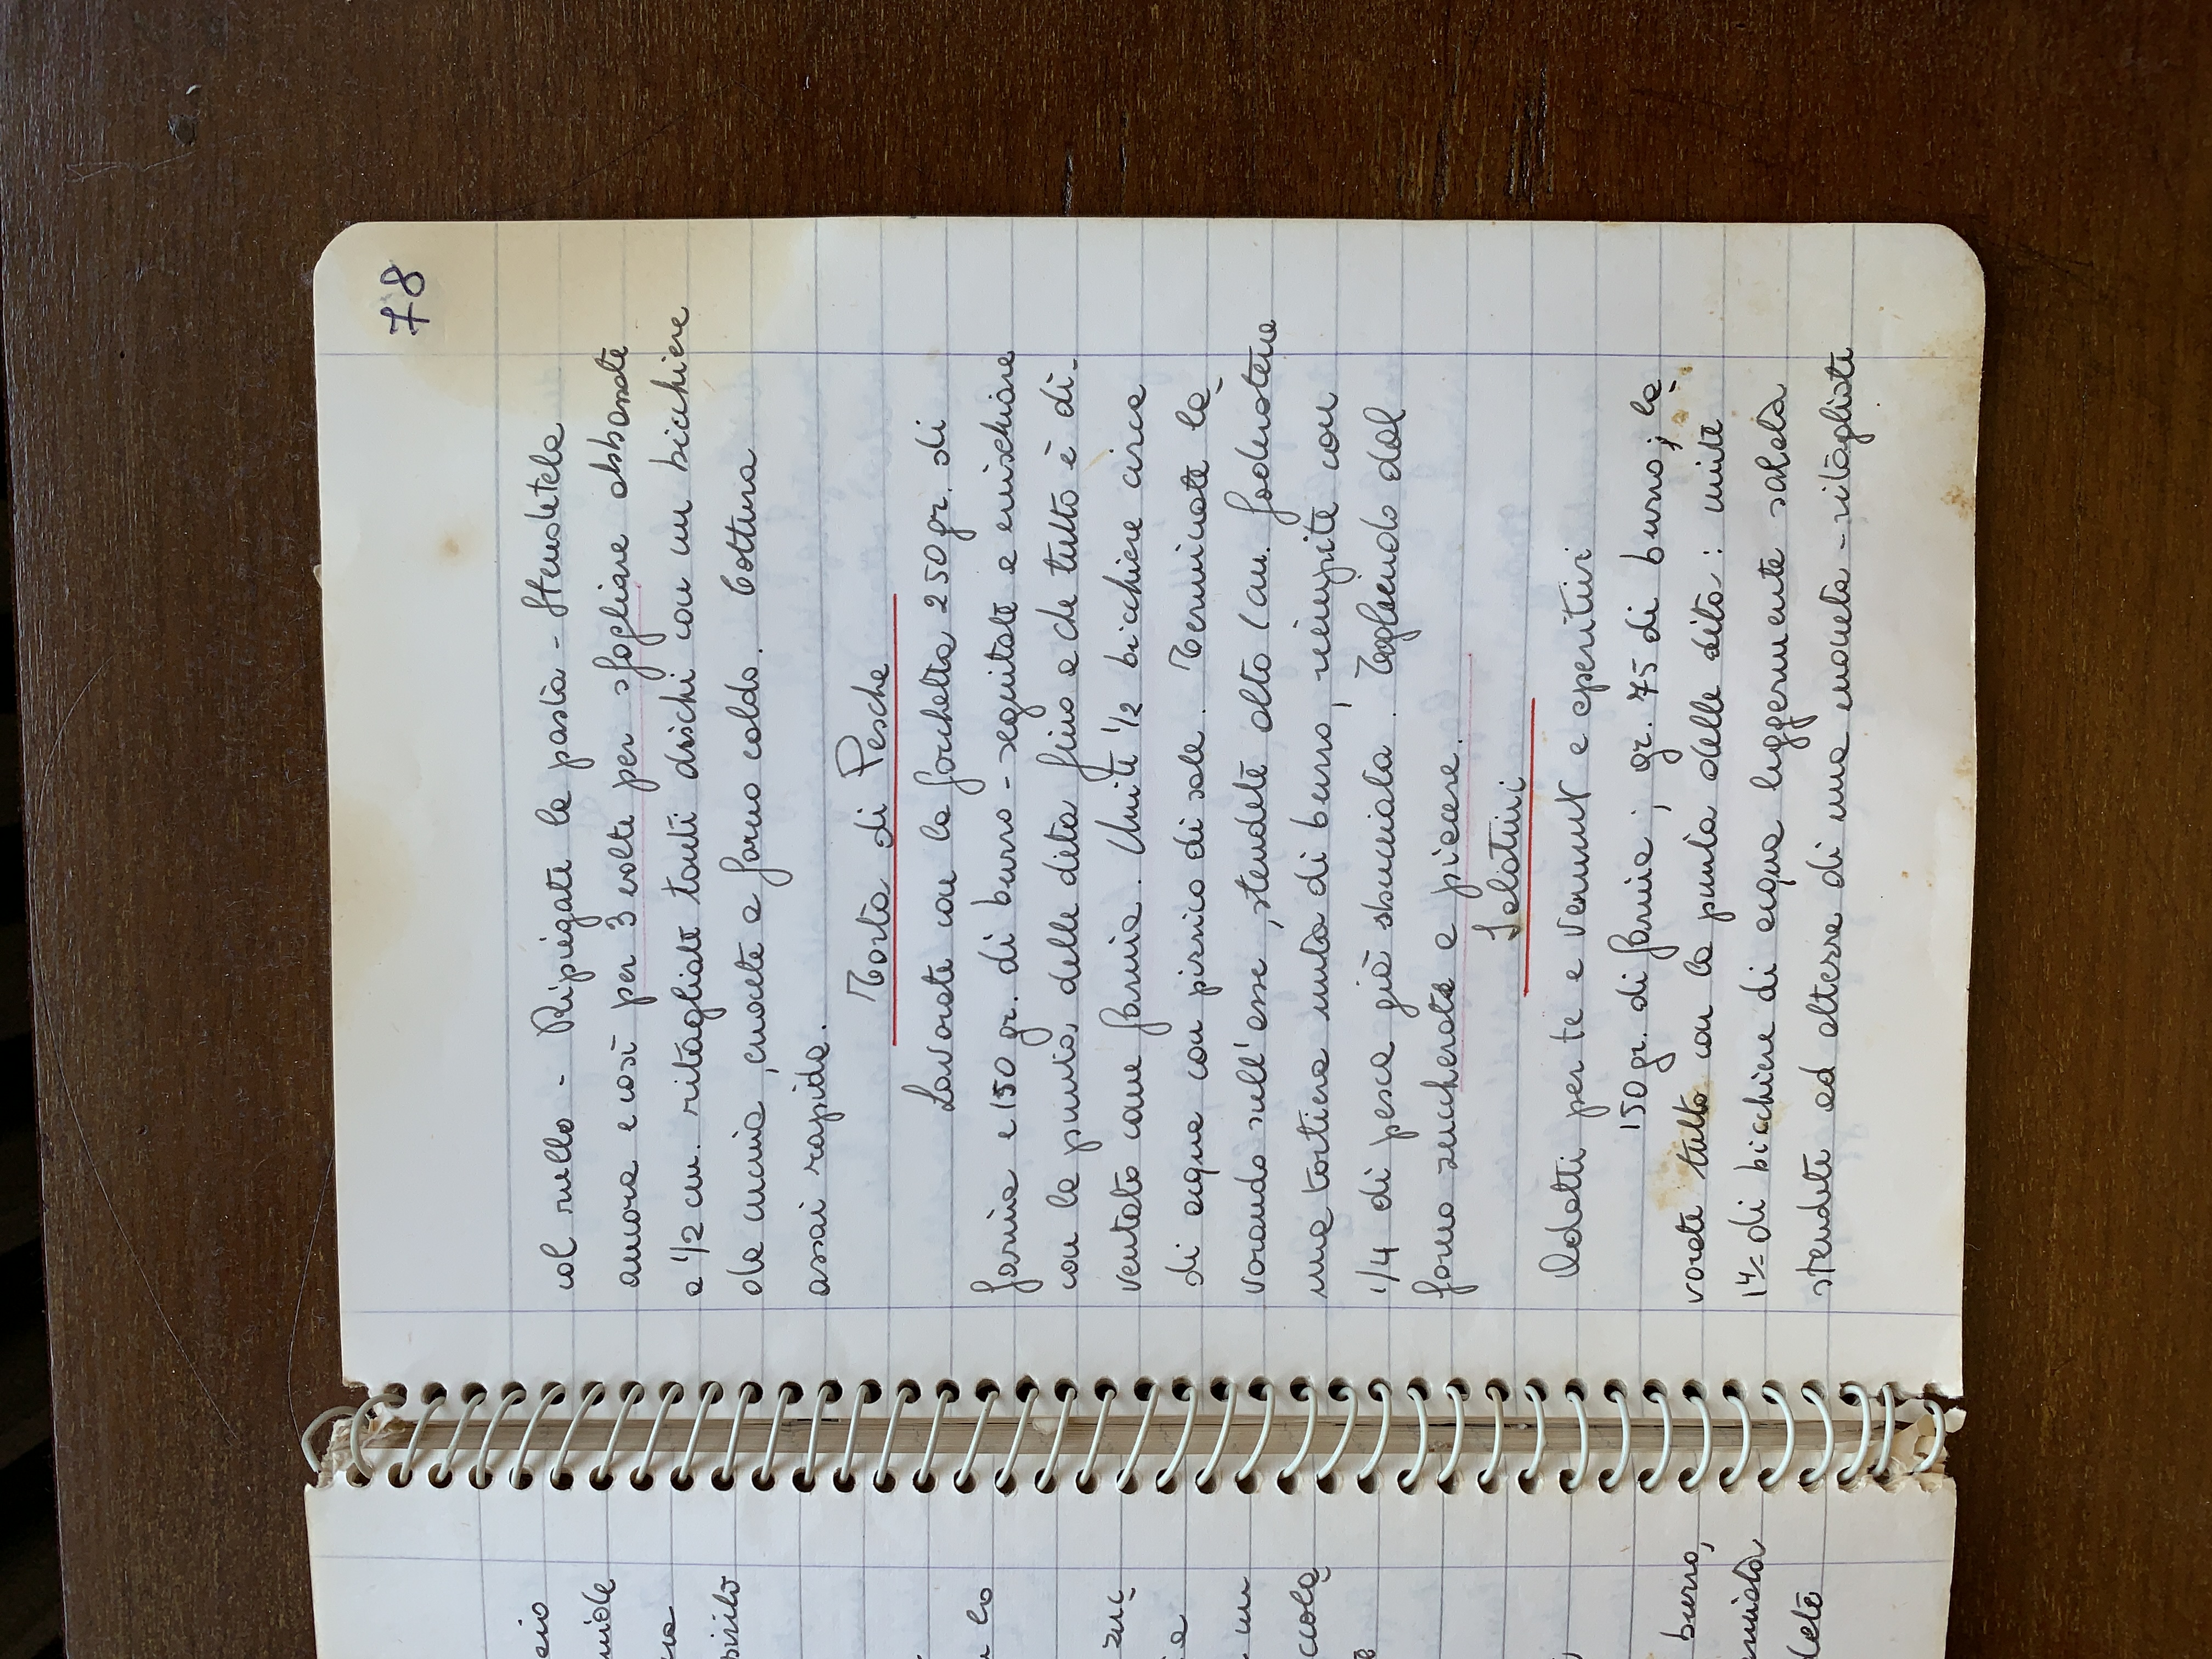 78
col rullo - Ripiegate la pasta - Stendetela
ancora e così per 3 volte per sfogliare abbassate
a 1/2 cm. ritagliate tanti dischi con un bicchiere
da cucina, cuocete a forno caldo. Cottura
assai rapida.
Torta di Pesche
Lavorate con la forchetta 250 gr. di
farina e 150 gr. di burro - seguitate a mischiare
con la punta delle dita fino a che tutto è di-
ventato come farina. Unite 1/2 bicchiere circa
di acqua con pizzico di sale. Terminate la-
vorando sull'asse, stendete alto 1 cm. foderatene
una tortiera unta di burro, riempite con
1/4 di pesca già sbucciata. Togliendo dal
forno zuccherate a piacere.
Salatini
Adatti per te e vermut e aperitivi
150 gr. di farina; gr. 75 di burro; la-
vorate tutto con la punta delle dita: unite
1/4 di bicchiere di acqua leggermente salata
stendete ad altezza di una moneta - ritagliate
cio
zuc-
ia
un
lo
ccola-
burro,
dete